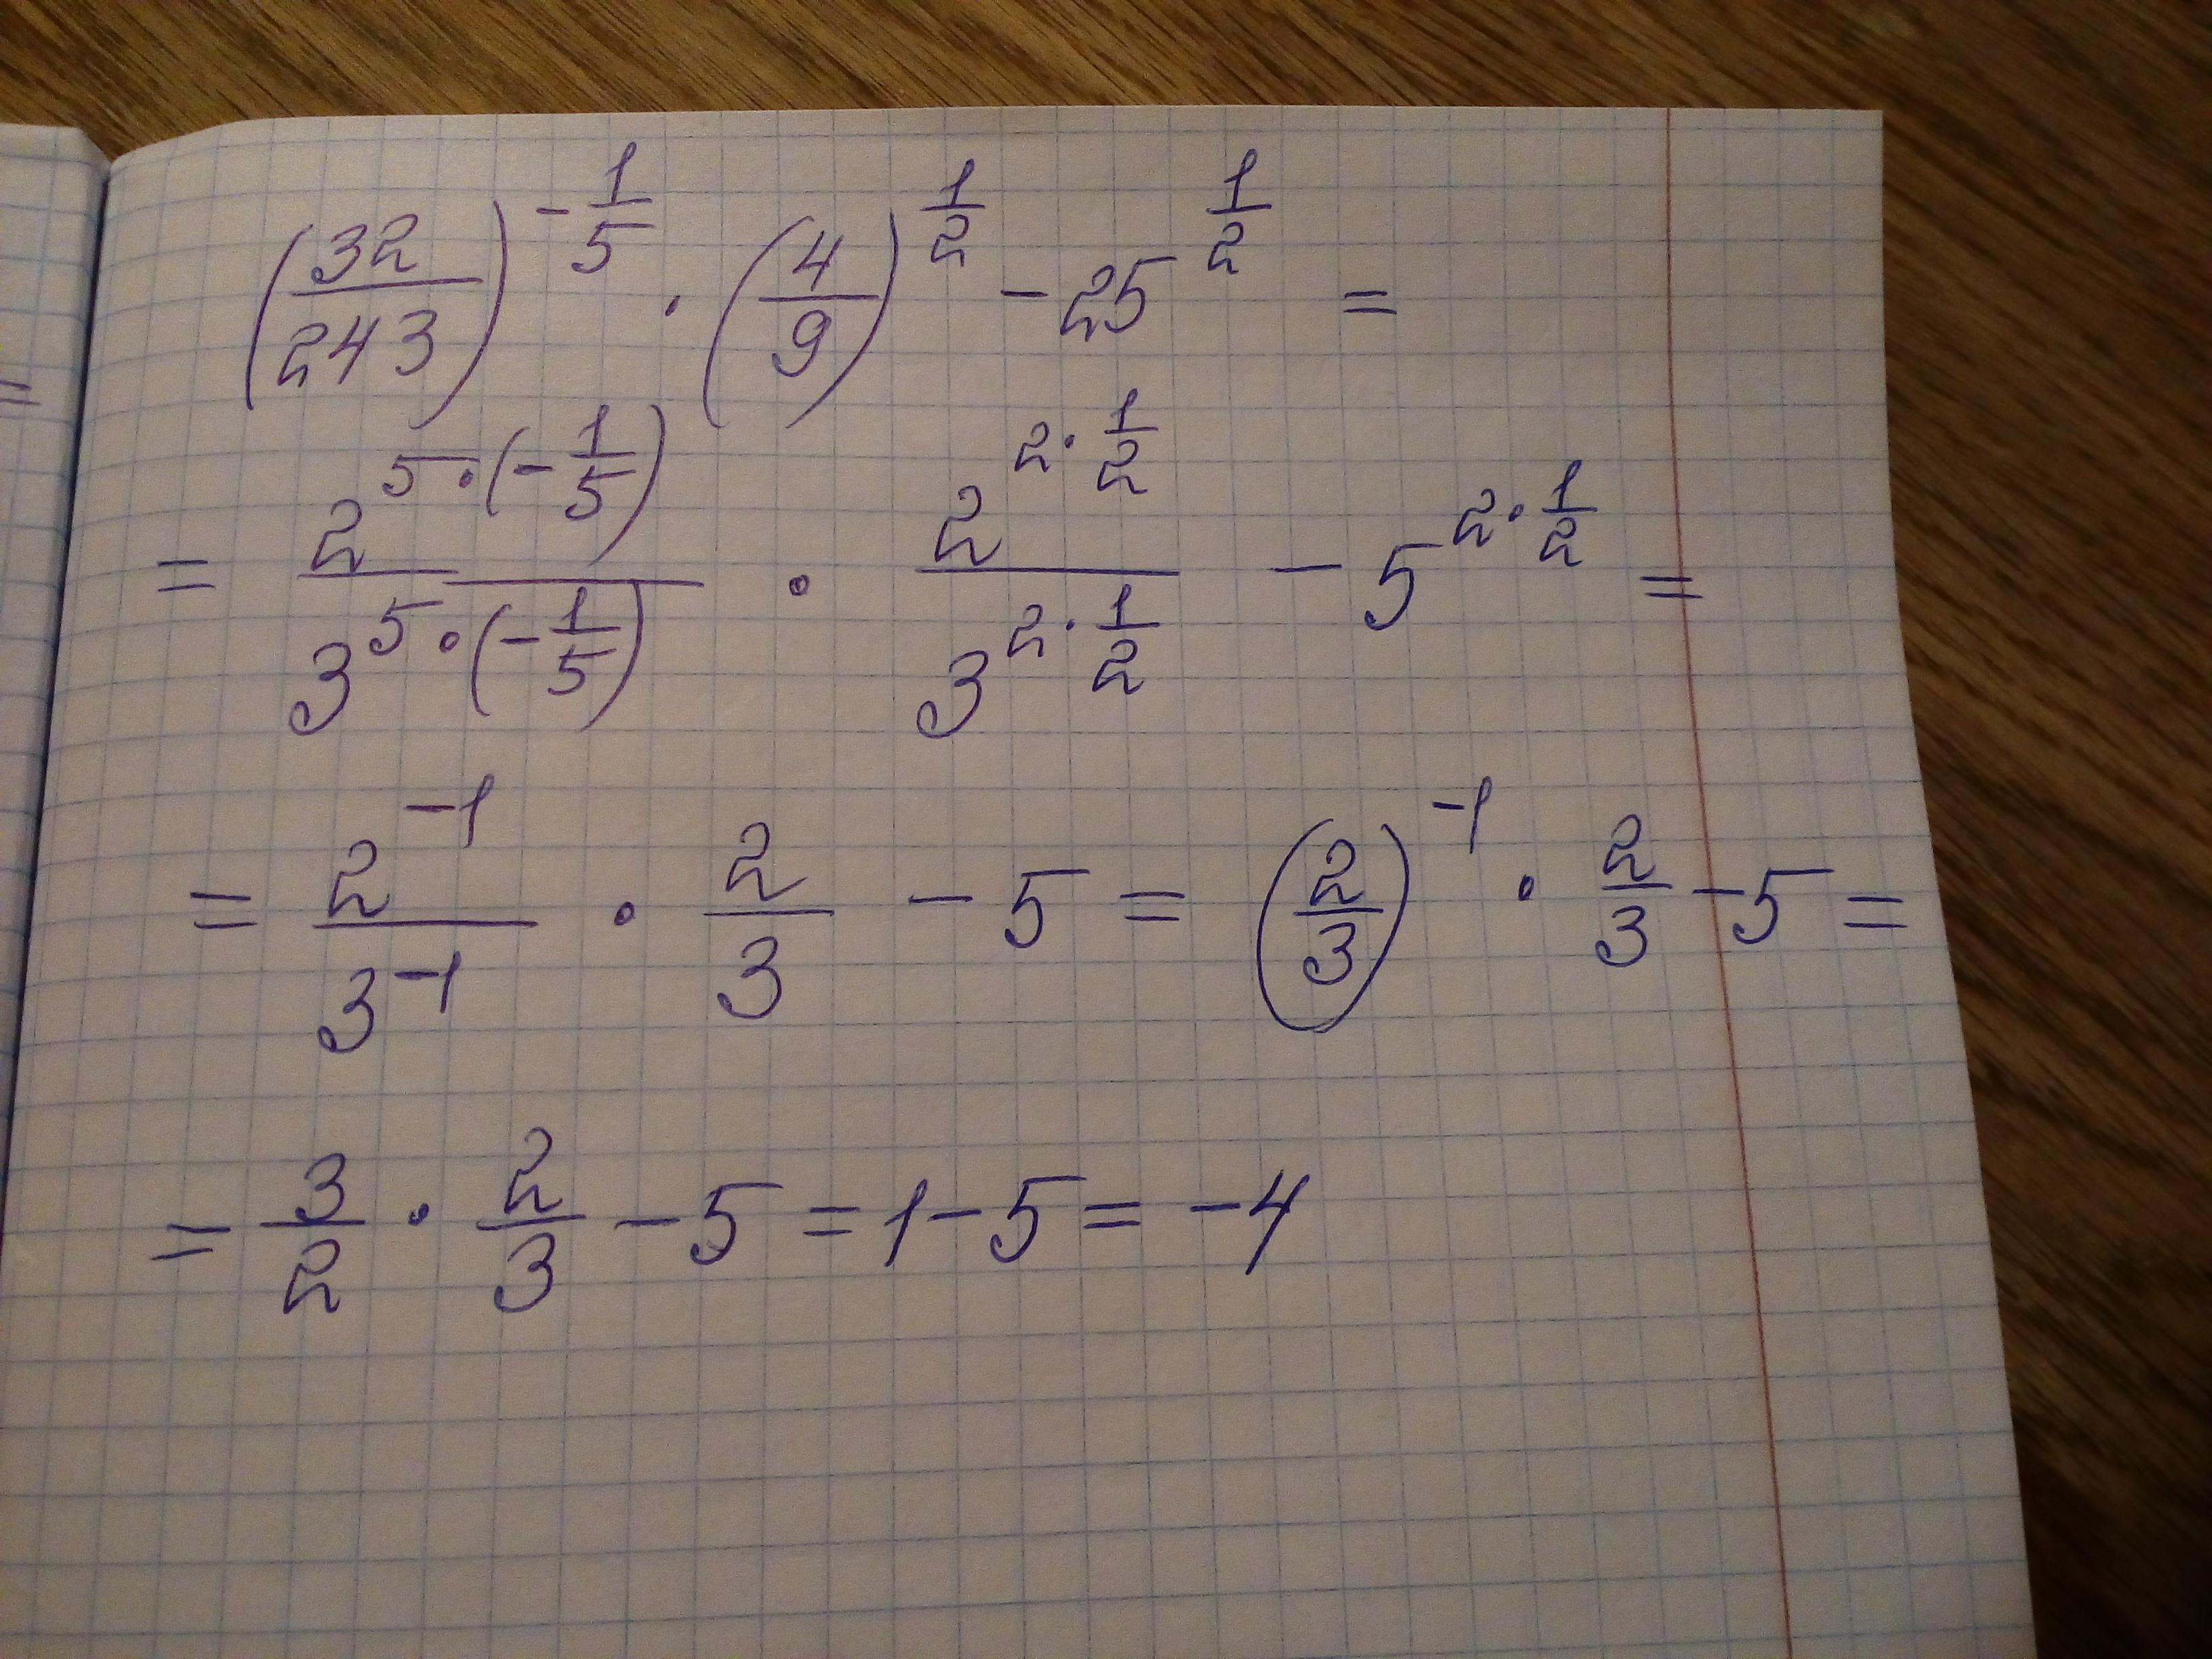 (32/243)^(-1/5) · (4/9)^(1/2) - 25^(1/2) =
= 2^(5·(-1/5)) / 3^(5·(-1/5)) · 2^(2·1/2) / 3^(2·1/2) - 5^(2·1/2) =
= 2^(-1) / 3^(-1) · 2/3 - 5 = (2/3)^(-1) · 2/3 - 5 =
= 3/2 · 2/3 - 5 = 1 - 5 = -4
=